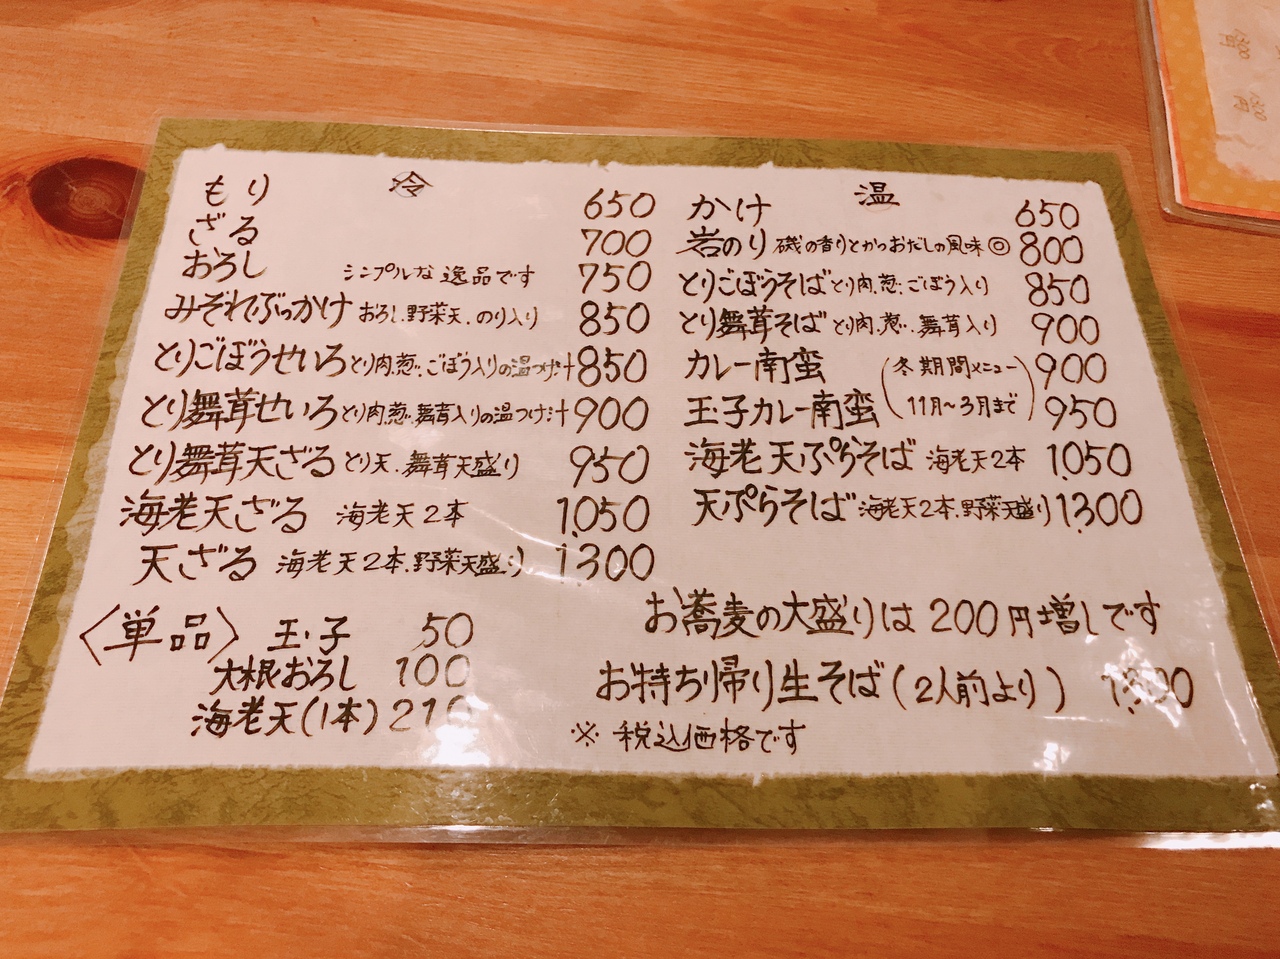 冷
もり 650
ざる 700
おろし シンプルな逸品です 750
みぞれぶっかけ おろし.野菜天.のり入り 850
とりごぼうせいろ とり肉.葱.ごぼう入りの温つけ汁 850
とり舞茸せいろ とり肉.葱.舞茸入りの温つけ汁 900
とり舞茸天ざる とり天.舞茸天盛り 950
海老天ざる 海老天2本 1,050
天ざる 海老天2本.野菜天盛り 1,300
〈単品〉 玉子 50
大根おろし 100
海老天(1本) 210
温
かけ 650
岩のり 磯の香りとかつおだしの風味◎ 800
とりごぼうそば とり肉.葱.ごぼう入り 850
とり舞茸そば とり肉.葱.舞茸入り 900
カレー南蛮 900
玉子カレー南蛮 950
(冬期間メニュー
11月～3月まで)
海老天ぷらそば 海老天2本 1,050
天ぷらそば 海老天2本.野菜天盛り 1,300
お蕎麦の大盛りは200円増しです
お持ち帰り生そば(2人前より)
※ 税込価格です